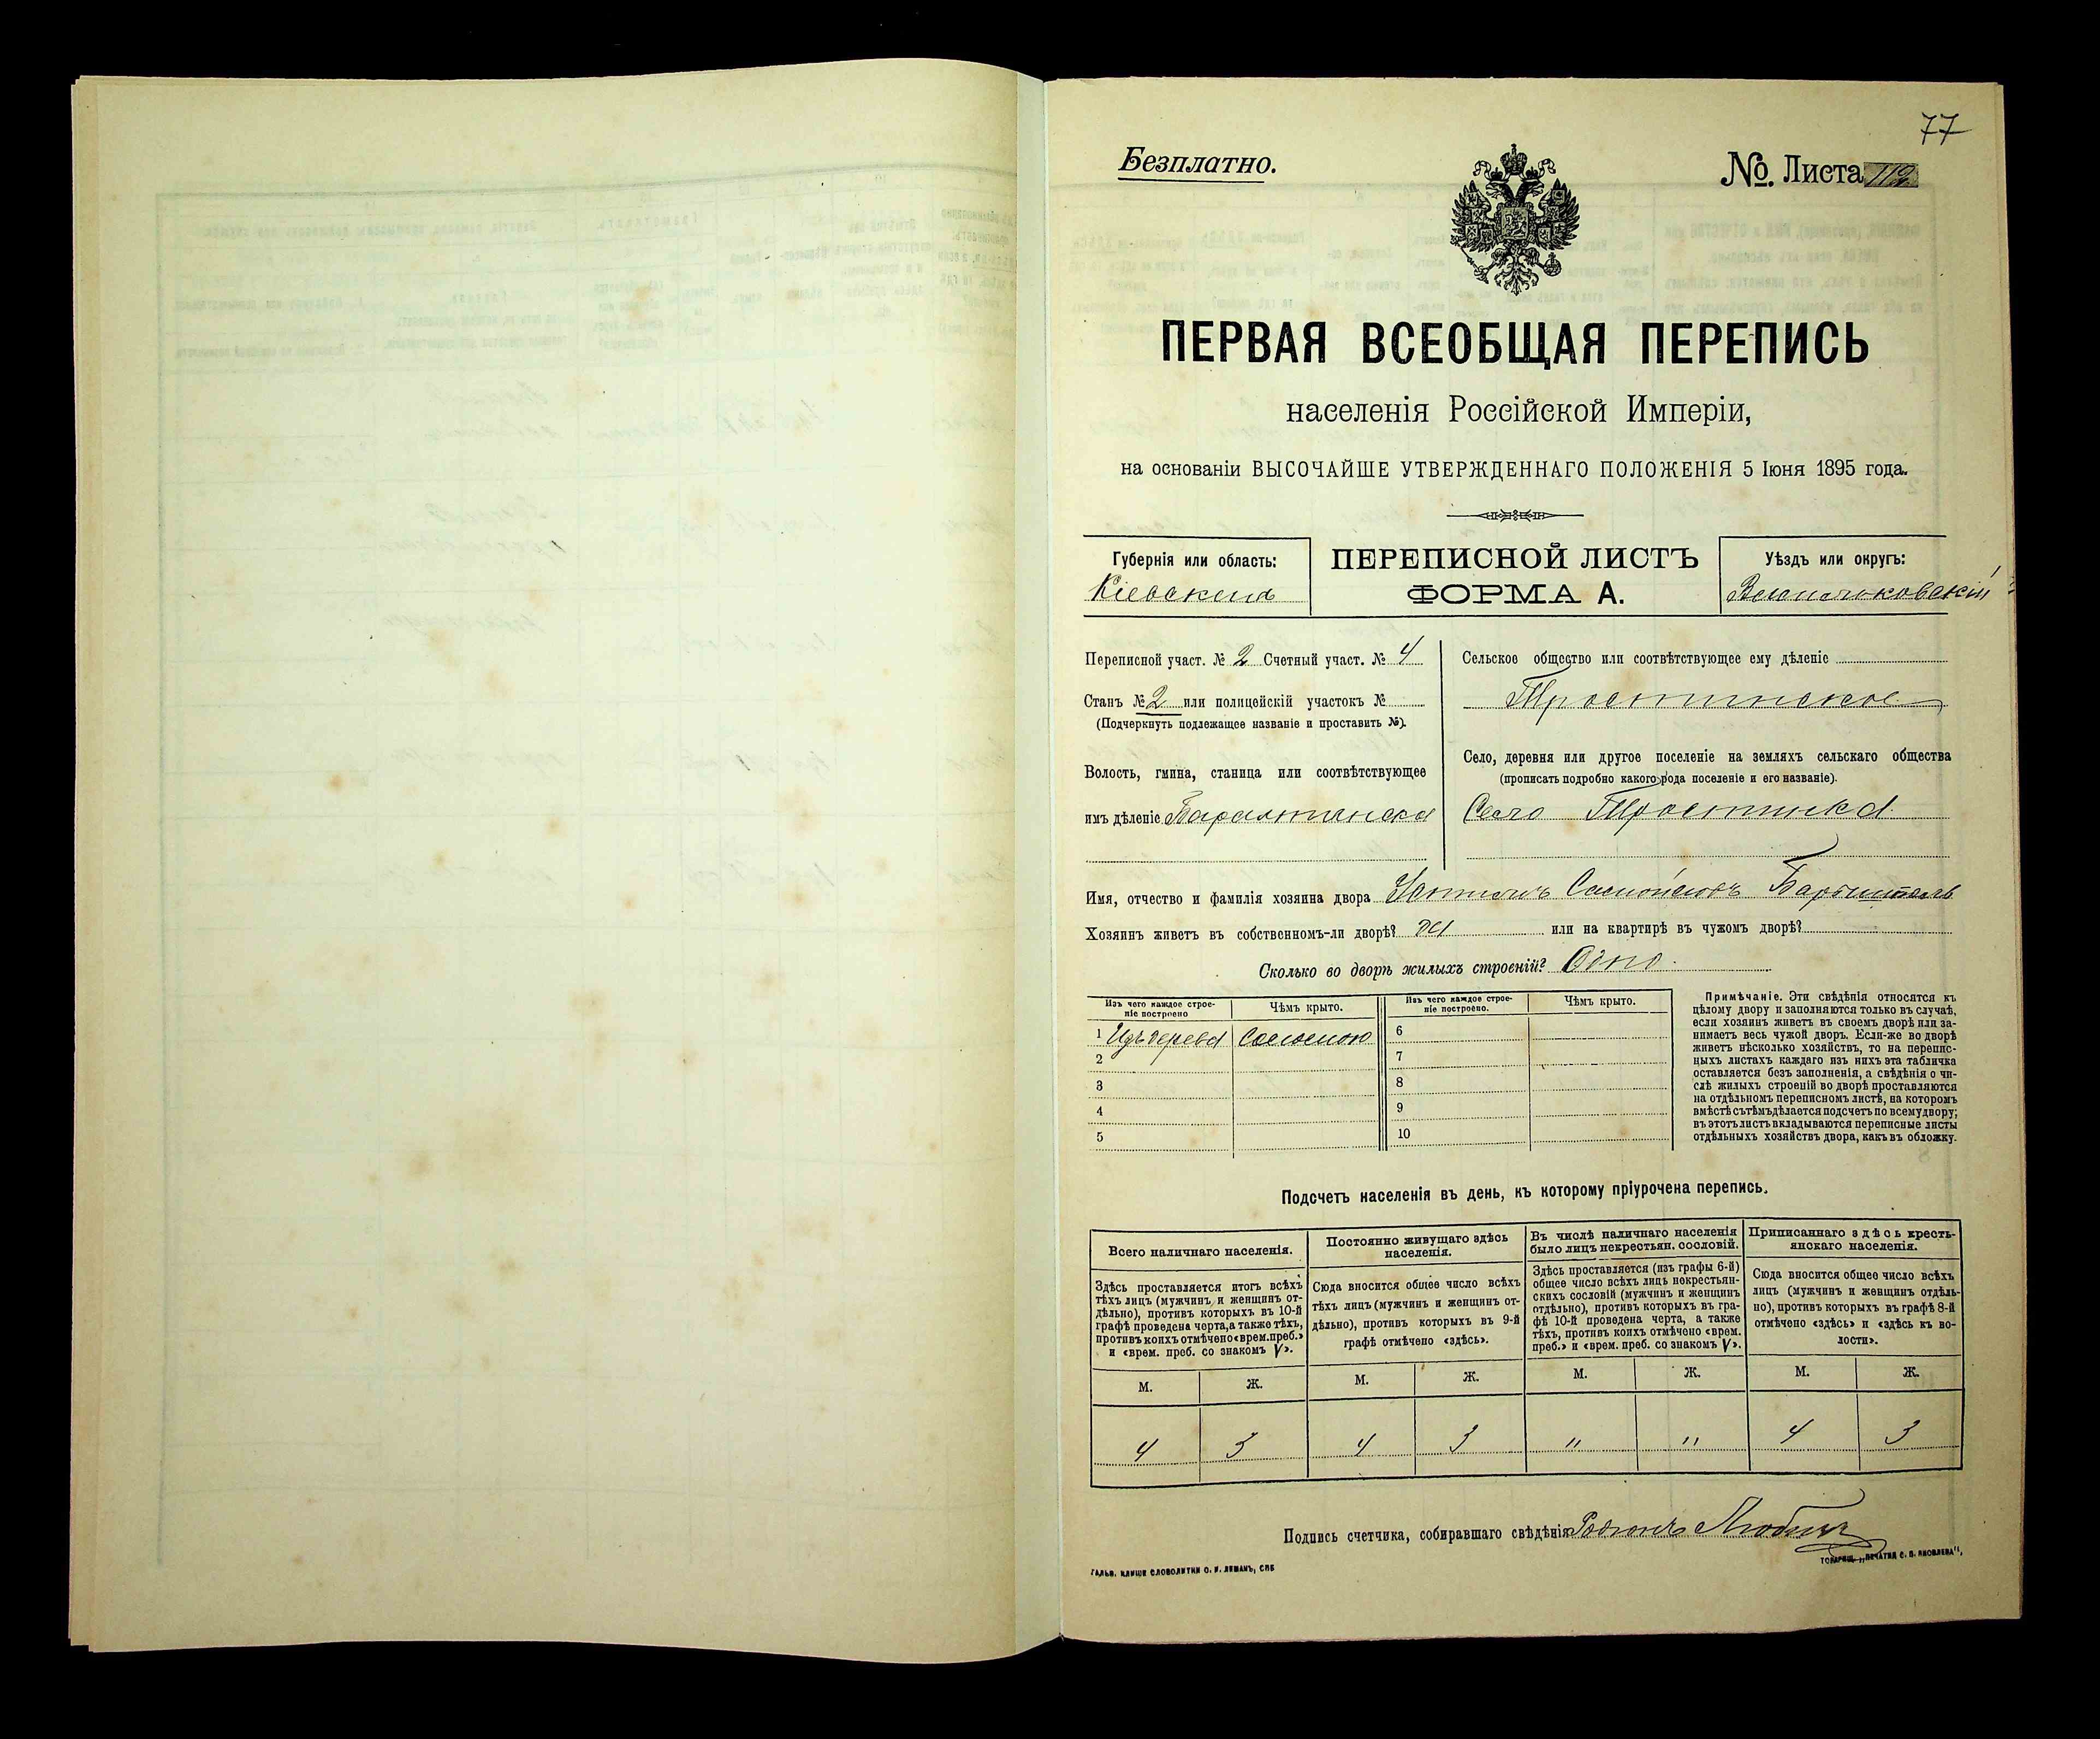 77
Безплатно.
№ Листа 119
ПЕРВАЯ ВСЕОБЩАЯ ПЕРЕПИСЬ
населенія Россійской Имперіи,
на основаніи ВЫСОЧАЙШЕ УТВЕРЖДЕННАГО ПОЛОЖЕНІЯ 5 Іюня 1895 года.
Губернія или область:
Кіевская
ПЕРЕПИСНОЙ ЛИСТЪ
ФОРМА А.
Уѣздъ или округъ:
Васильковскій
Переписной участ. № 2 Счетный участ. № 4
Станъ № 2 или полицейскій участокъ №
(Подчеркнуть подлежащее названіе и проставить №).
Волость, гмина, станица или соотвѣтствующее
имъ дѣленіе
Сельское общество или соотвѣтствующее ему дѣленіе
Тростинское
Село, деревня или другое поселеніе на земляхъ сельскаго общества
(прописать подробно какого рода поселеніе и его названіе).
Село Тростинка
Имя, отчество и фамилія хозяина двора
Хозяинъ живетъ въ собственномъ-ли дворѣ? да или на квартирѣ въ чужомъ дворѣ?
Сколько во дворѣ жилыхъ строеній? Одно.
Изъ чего каждое строе-
ніе построено
Чѣмъ крыто.
Изъ чего каждое строе-
ніе построено.
Чѣмъ крыто.
1 Изъ дерева Соломою
2
3
4
5
6
7
8
9
10
Примѣчаніе. Эти свѣдѣнія относятся къ
цѣлому двору и заполняются только въ случаѣ,
если хозяинъ живетъ въ своемъ дворѣ или за-
нимаетъ весь чужой дворъ. Если-же во дворѣ
живетъ нѣсколько хозяйствъ, то на перепис-
ныхъ листахъ каждаго изъ нихъ эта табличка
оставляется безъ заполненія, а свѣдѣнія о чи-
слѣ жилыхъ строеній во дворѣ проставляются
на отдѣльномъ переписномъ листѣ, на которомъ
вмѣстѣ съ тѣмъ дѣлается подсчетъ по всему двору;
въ этотъ листъ вкладываются переписные листы
отдѣльныхъ хозяйствъ двора, какъ въ обложку.
Подсчетъ населенія въ день, къ которому пріурочена перепись.
Всего наличнаго населенія.
Здѣсь проставляется итогъ всѣхъ
тѣхъ лицъ (мужчинъ и женщинъ от-
дѣльно), противъ которыхъ въ 10-й
графѣ проведена черта, а также тѣхъ,
противъ коихъ отмѣчено «врем. преб.»
и «врем. преб. со знакомъ V».
Постоянно живущаго здѣсь
населенія.
Сюда вносится общее число всѣхъ
тѣхъ лицъ (мужчинъ и женщинъ от-
дѣльно), противъ которыхъ въ 9-й
графѣ отмѣчено «здѣсь».
Въ числѣ наличнаго населенія
было лицъ некрестьян. сословій.
Здѣсь проставляется (изъ графы 6-й)
общее число всѣхъ лицъ некрестьян-
скихъ сословій (мужчинъ и женщинъ
отдѣльно), противъ которыхъ въ гра-
фѣ 10-й проведена черта, а также
тѣхъ, противъ коихъ отмѣчено «врем.
преб.» и «врем. преб. со знакомъ V».
Приписаннаго здѣсь кресть-
янскаго населенія.
Сюда вносится общее число всѣхъ
лицъ (мужчинъ и женщинъ отдѣль-
но), противъ которыхъ въ графѣ 8-й
отмѣчено «здѣсь» и «здѣсь къ во-
лости».
М. Ж. М. Ж. М. Ж. М. Ж.
4 3 4 3 " " 4 3
Подпись счетчика, собиравшаго свѣдѣнія Родіонъ
ГАЛЬВ. КЛИШЕ СЛОВОЛИТНИ О. И. ЛЕМАНЪ, СПБ
ТОВАРИЩ. „ПЕЧАТНЯ С. П. ЯКОВЛЕВА",